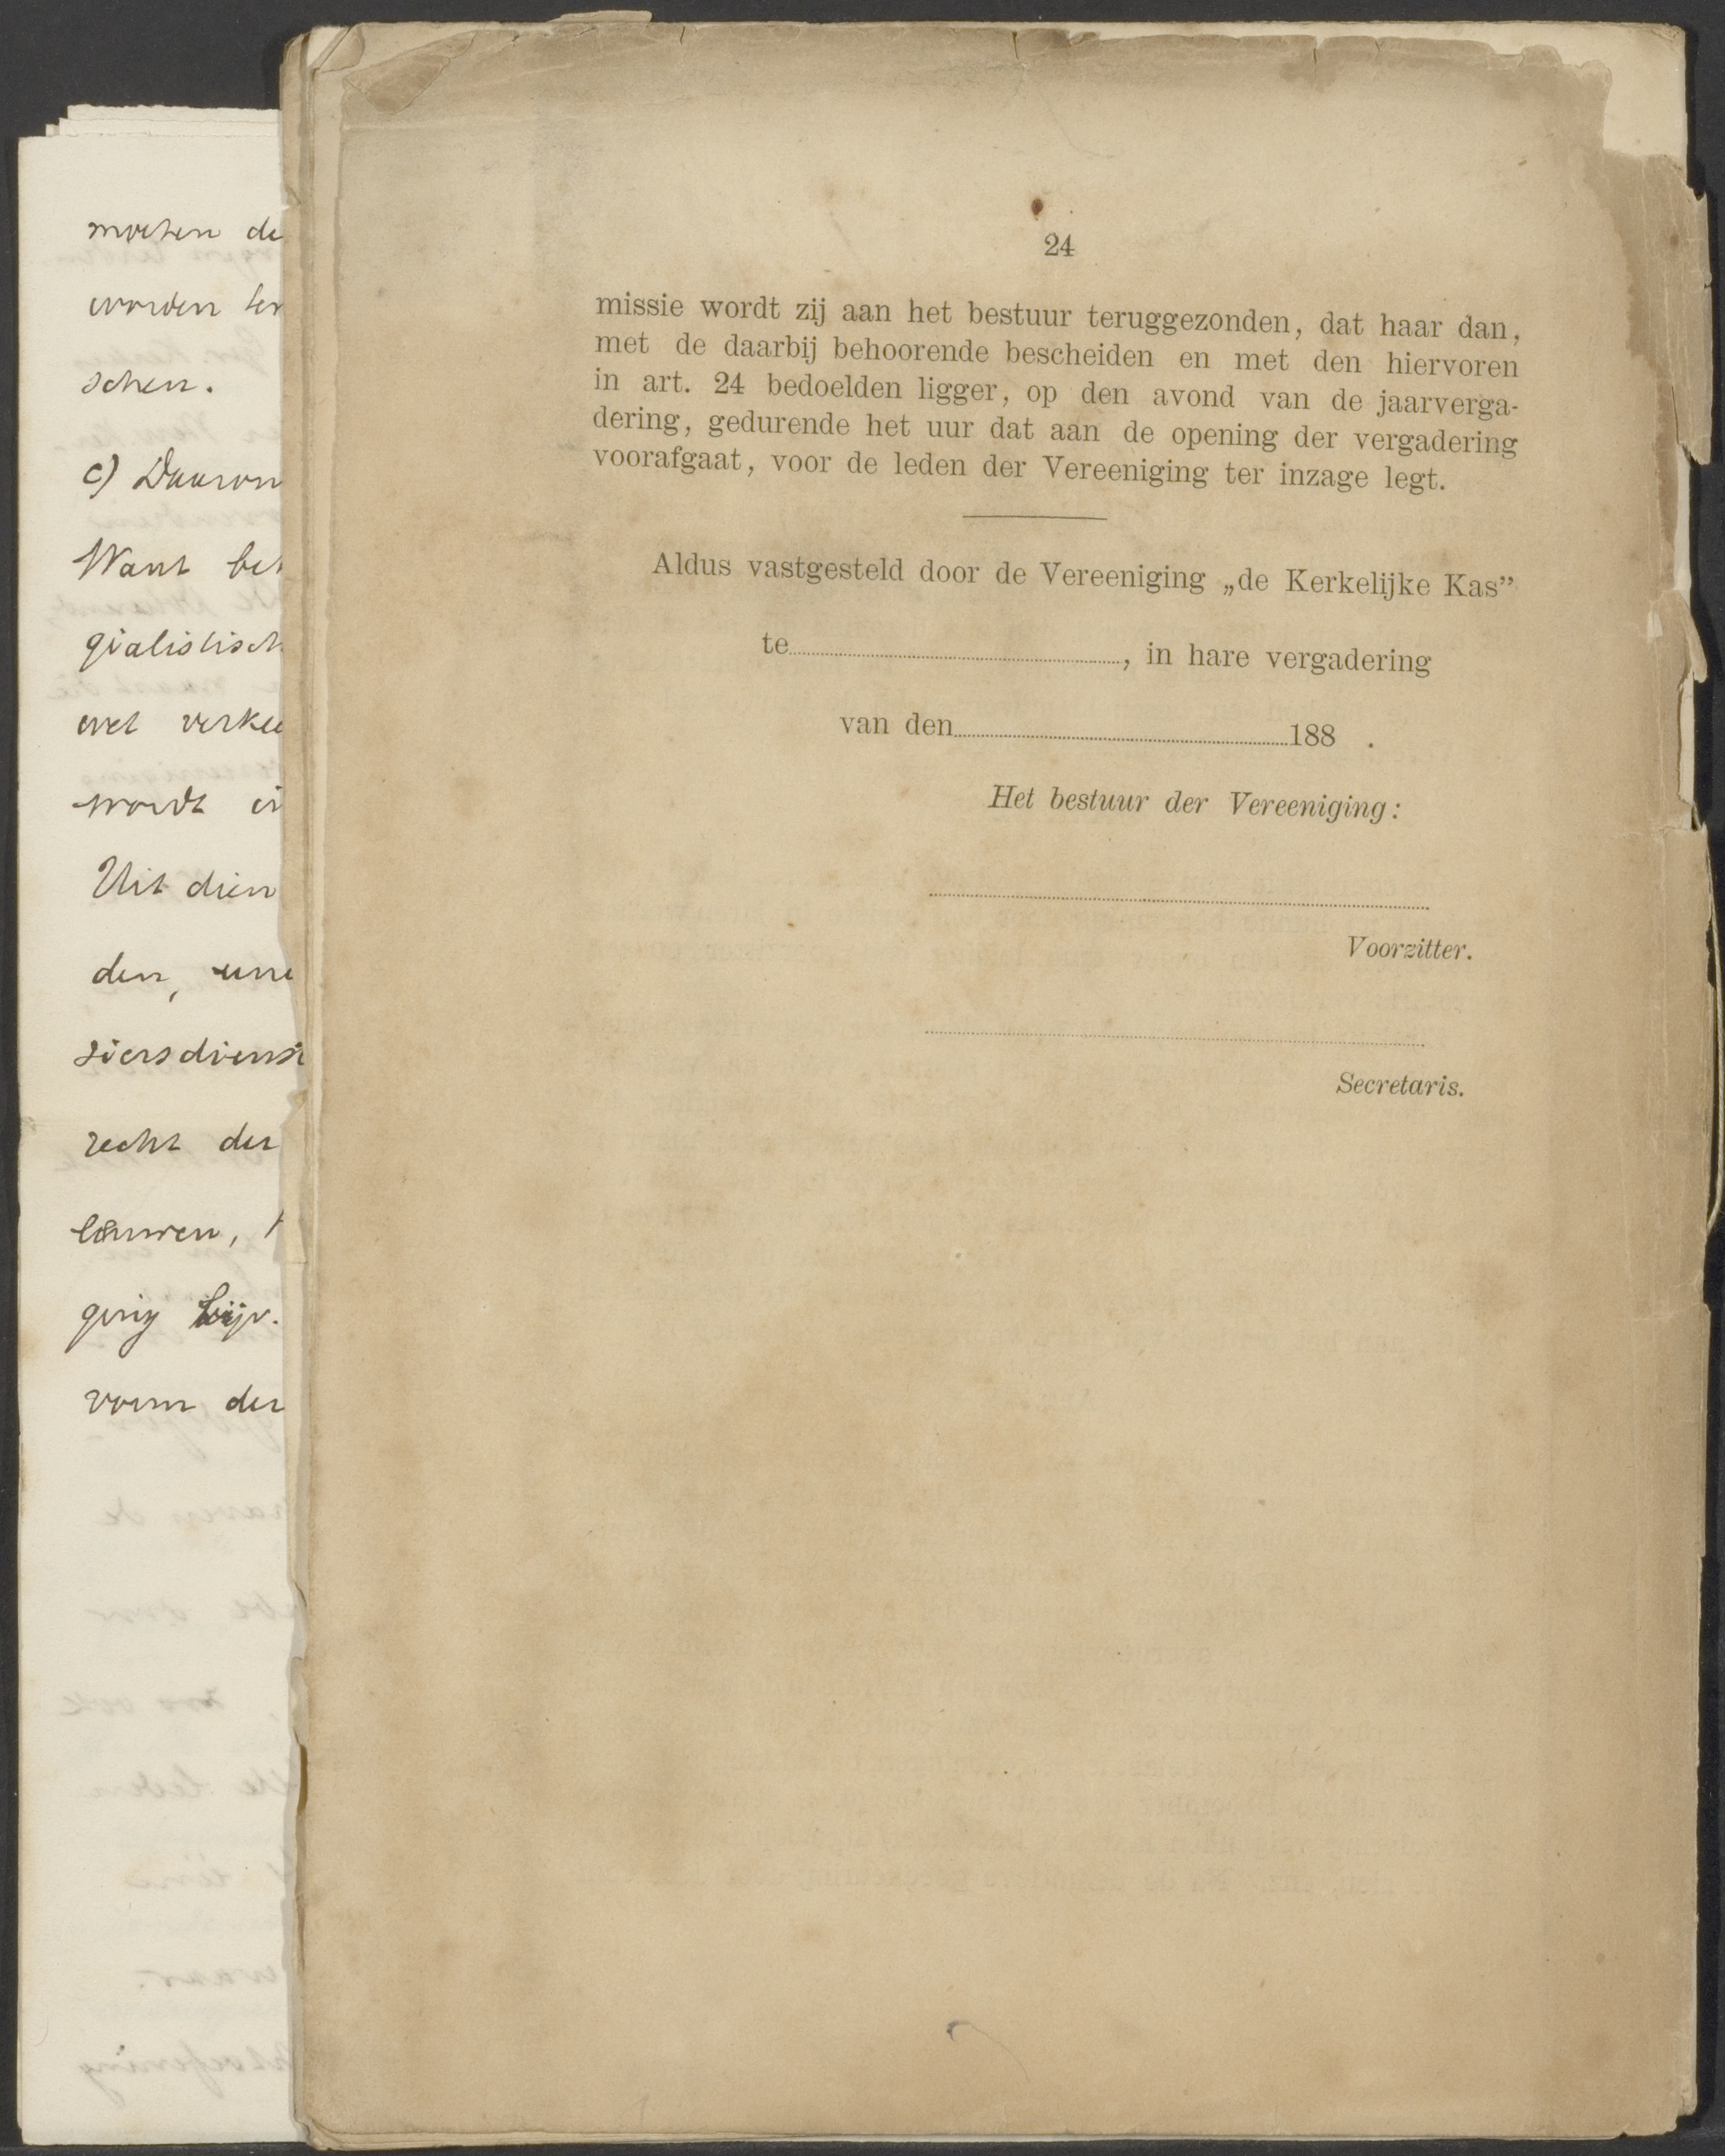 moeten de
worden ter
schen.
c) Daarom
Want bet
gialistisch
wet verkee
wordt in
Uit dien
den, une
siersdienst
recht der
gerig bijv.
vorm der
24
missie wordt zij aan het bestuur teruggezonden, dat haar dan,
met de daarbij behoorende bescheiden en met den hiervoren
in art. 24 bedoelden ligger, op den avond van de jaarverga-
dering, gedurende het uur dat aan de opening der vergadering
voorafgaat, voor de leden der Vereeniging ter inzage legt.
Aldus vastgesteld door de Vereeniging „de Kerkelijke Kas”
te........................, in hare vergadering
van den........................188 .
Het bestuur der Vereeniging:
Voorzitter.
Secretaris.